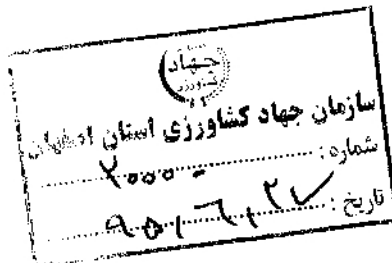 جهاد
کشاورزی
سازمان جهاد کشاورزی استان اصفهان
شماره : ۲۰۰۰۰
تاریخ : ۹۰,۶,۲۷